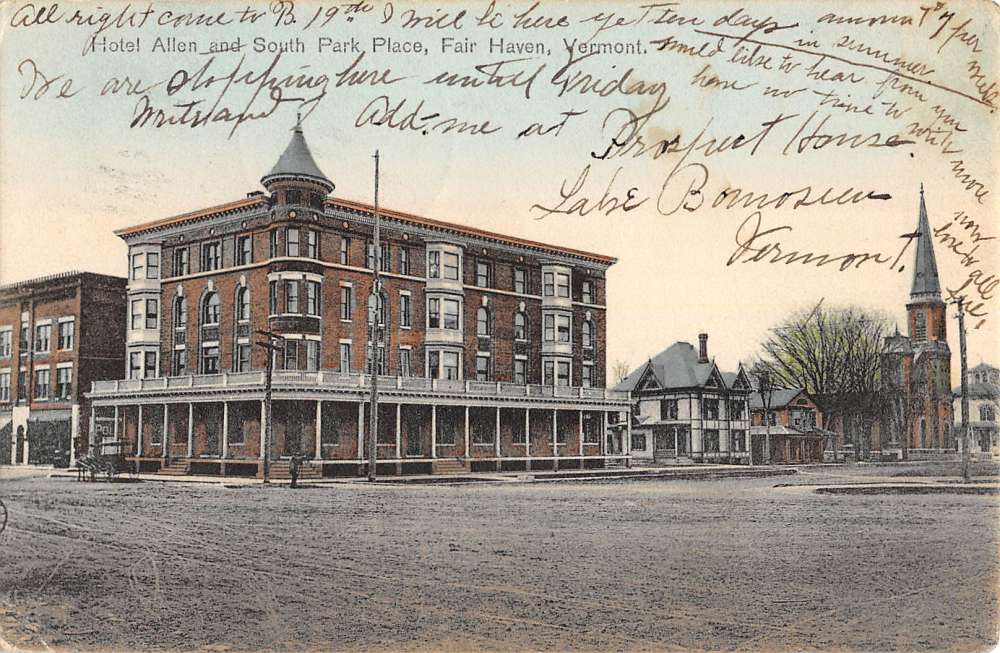 All right come to B. 19th I will be here yet ten days
Hotel Allen and South Park Place, Fair Haven, Vermont.
We are stopping here until Friday
Add- me at
Prospect House.
Lake Bomoseen
Vermont.
amount $7 per week
in summer
would like to hear from you
have no time to write more
now
love to all